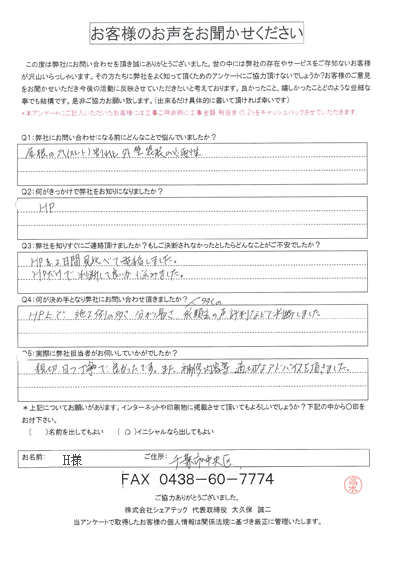 お客様のお声をお聞かせください
この度は弊社にお問い合わせを頂き誠にありがとうございました。世の中には弊社の存在やサービスをご存知ないお客様
が沢山いらっしゃいます。その方たちに弊社をよく知って頂くためのアンケートにご協力頂けないでしょうか?お客様のご意見
をお聞かせいただき今後の活動に反映させていただきたいと考えております。良かったこと、嬉しかったことどのような些細な
事でも結構です。是非ご協力お願い致します。(出来るだけ具体的に書いて頂ければ幸いです)
*本アンケートにご記入いただいたお客様には工事ご用命時に工事金額 税抜きの2%をキャッシュバックさせていただきます。
Q1:弊社にお問い合わせになる前にどんなことで悩んでいましたか?
屋根の(スレート)割れと外壁塗装の必要性
Q2:何がきっかけで弊社をお知りになりましたか?
HP
Q3:弊社を知りすぐにご連絡頂けましたか?もしご決断されなかったとしたらどんなことがご不安でしたか?
HPを2日間見比べて連絡しました。
HPだけで判断して良いか悩みました。
Q4:何が決め手となり弊社にお問い合わせ頂きましたか?
多くの
HP上で 施工例の多さ 分かり易さ 依頼主の声 評判などで判断しました
Q5:実際に弊社担当者がお伺いしていかがでしたか?
親切、且つ丁寧で良かったです。また、補修内容等 適切なアドバイスを頂きました。
*上記についてお願いがあります。インターネットや印刷物に掲載させて頂いてもよろしいでしょうか?下記の中から〇印を
お付下さい。
( )名前を出してもよい ( O )イニシャルなら出してもよい
お名前: H様 ご住所: 千葉市中央区
FAX 0438-60-7774
ご協力ありがとうございました。
株式会社シェアテック 代表取締役 大久保 誠二
当アンケートで取得したお客様の個人情報は関係法規に基づき厳正に管理いたします。